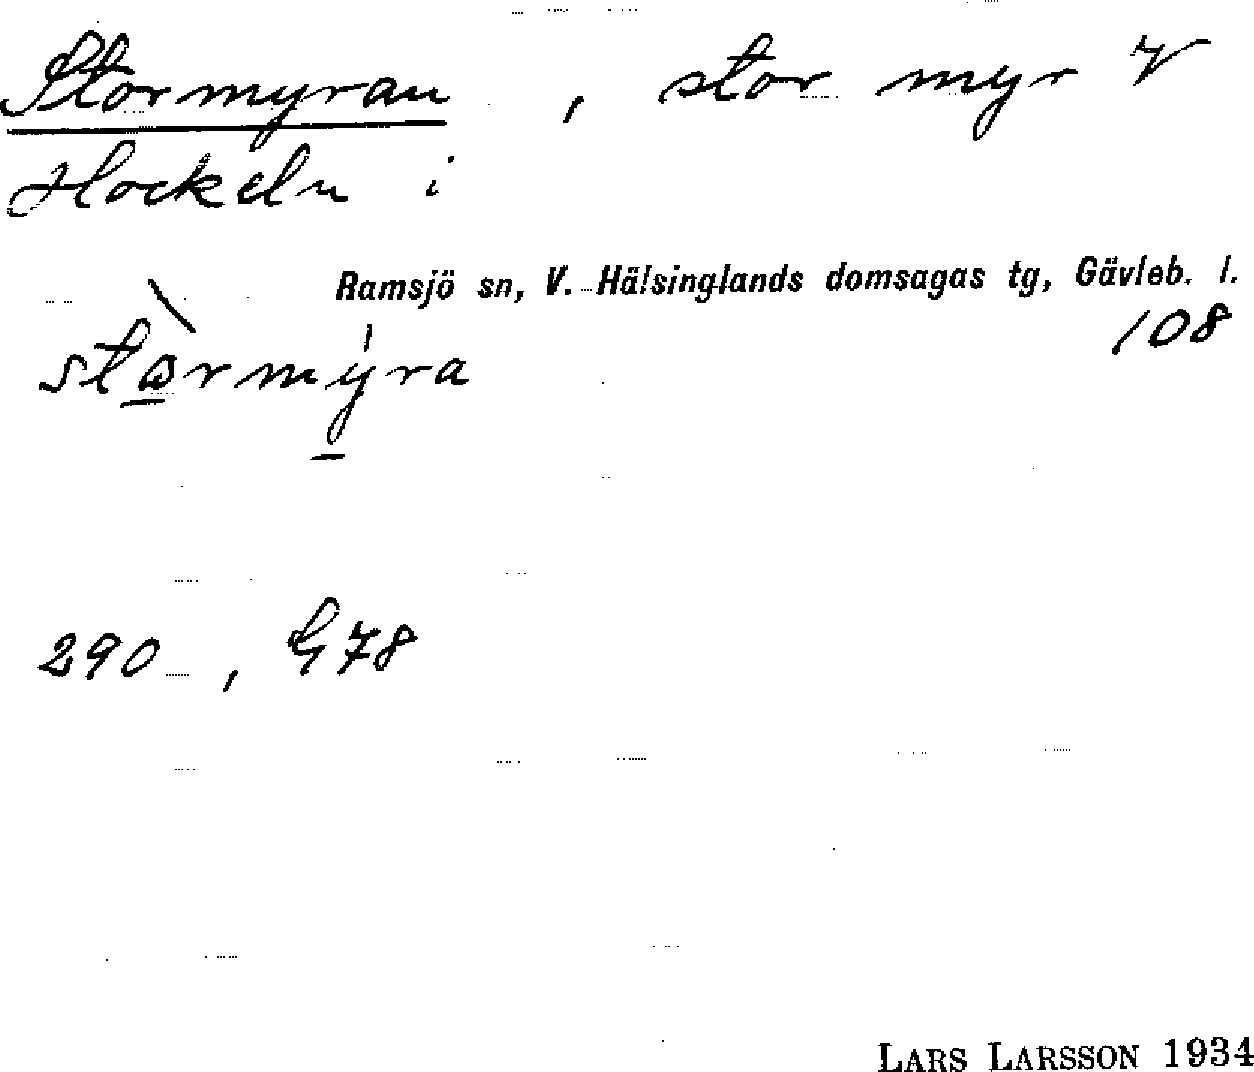 Stormyran, stor myr V
Hockeln i
Ramsjö sn, V. Hälsinglands domsagas tg, Gävleb. l.
108
stòrmýra
290, G78
LARS LARSSON 1934